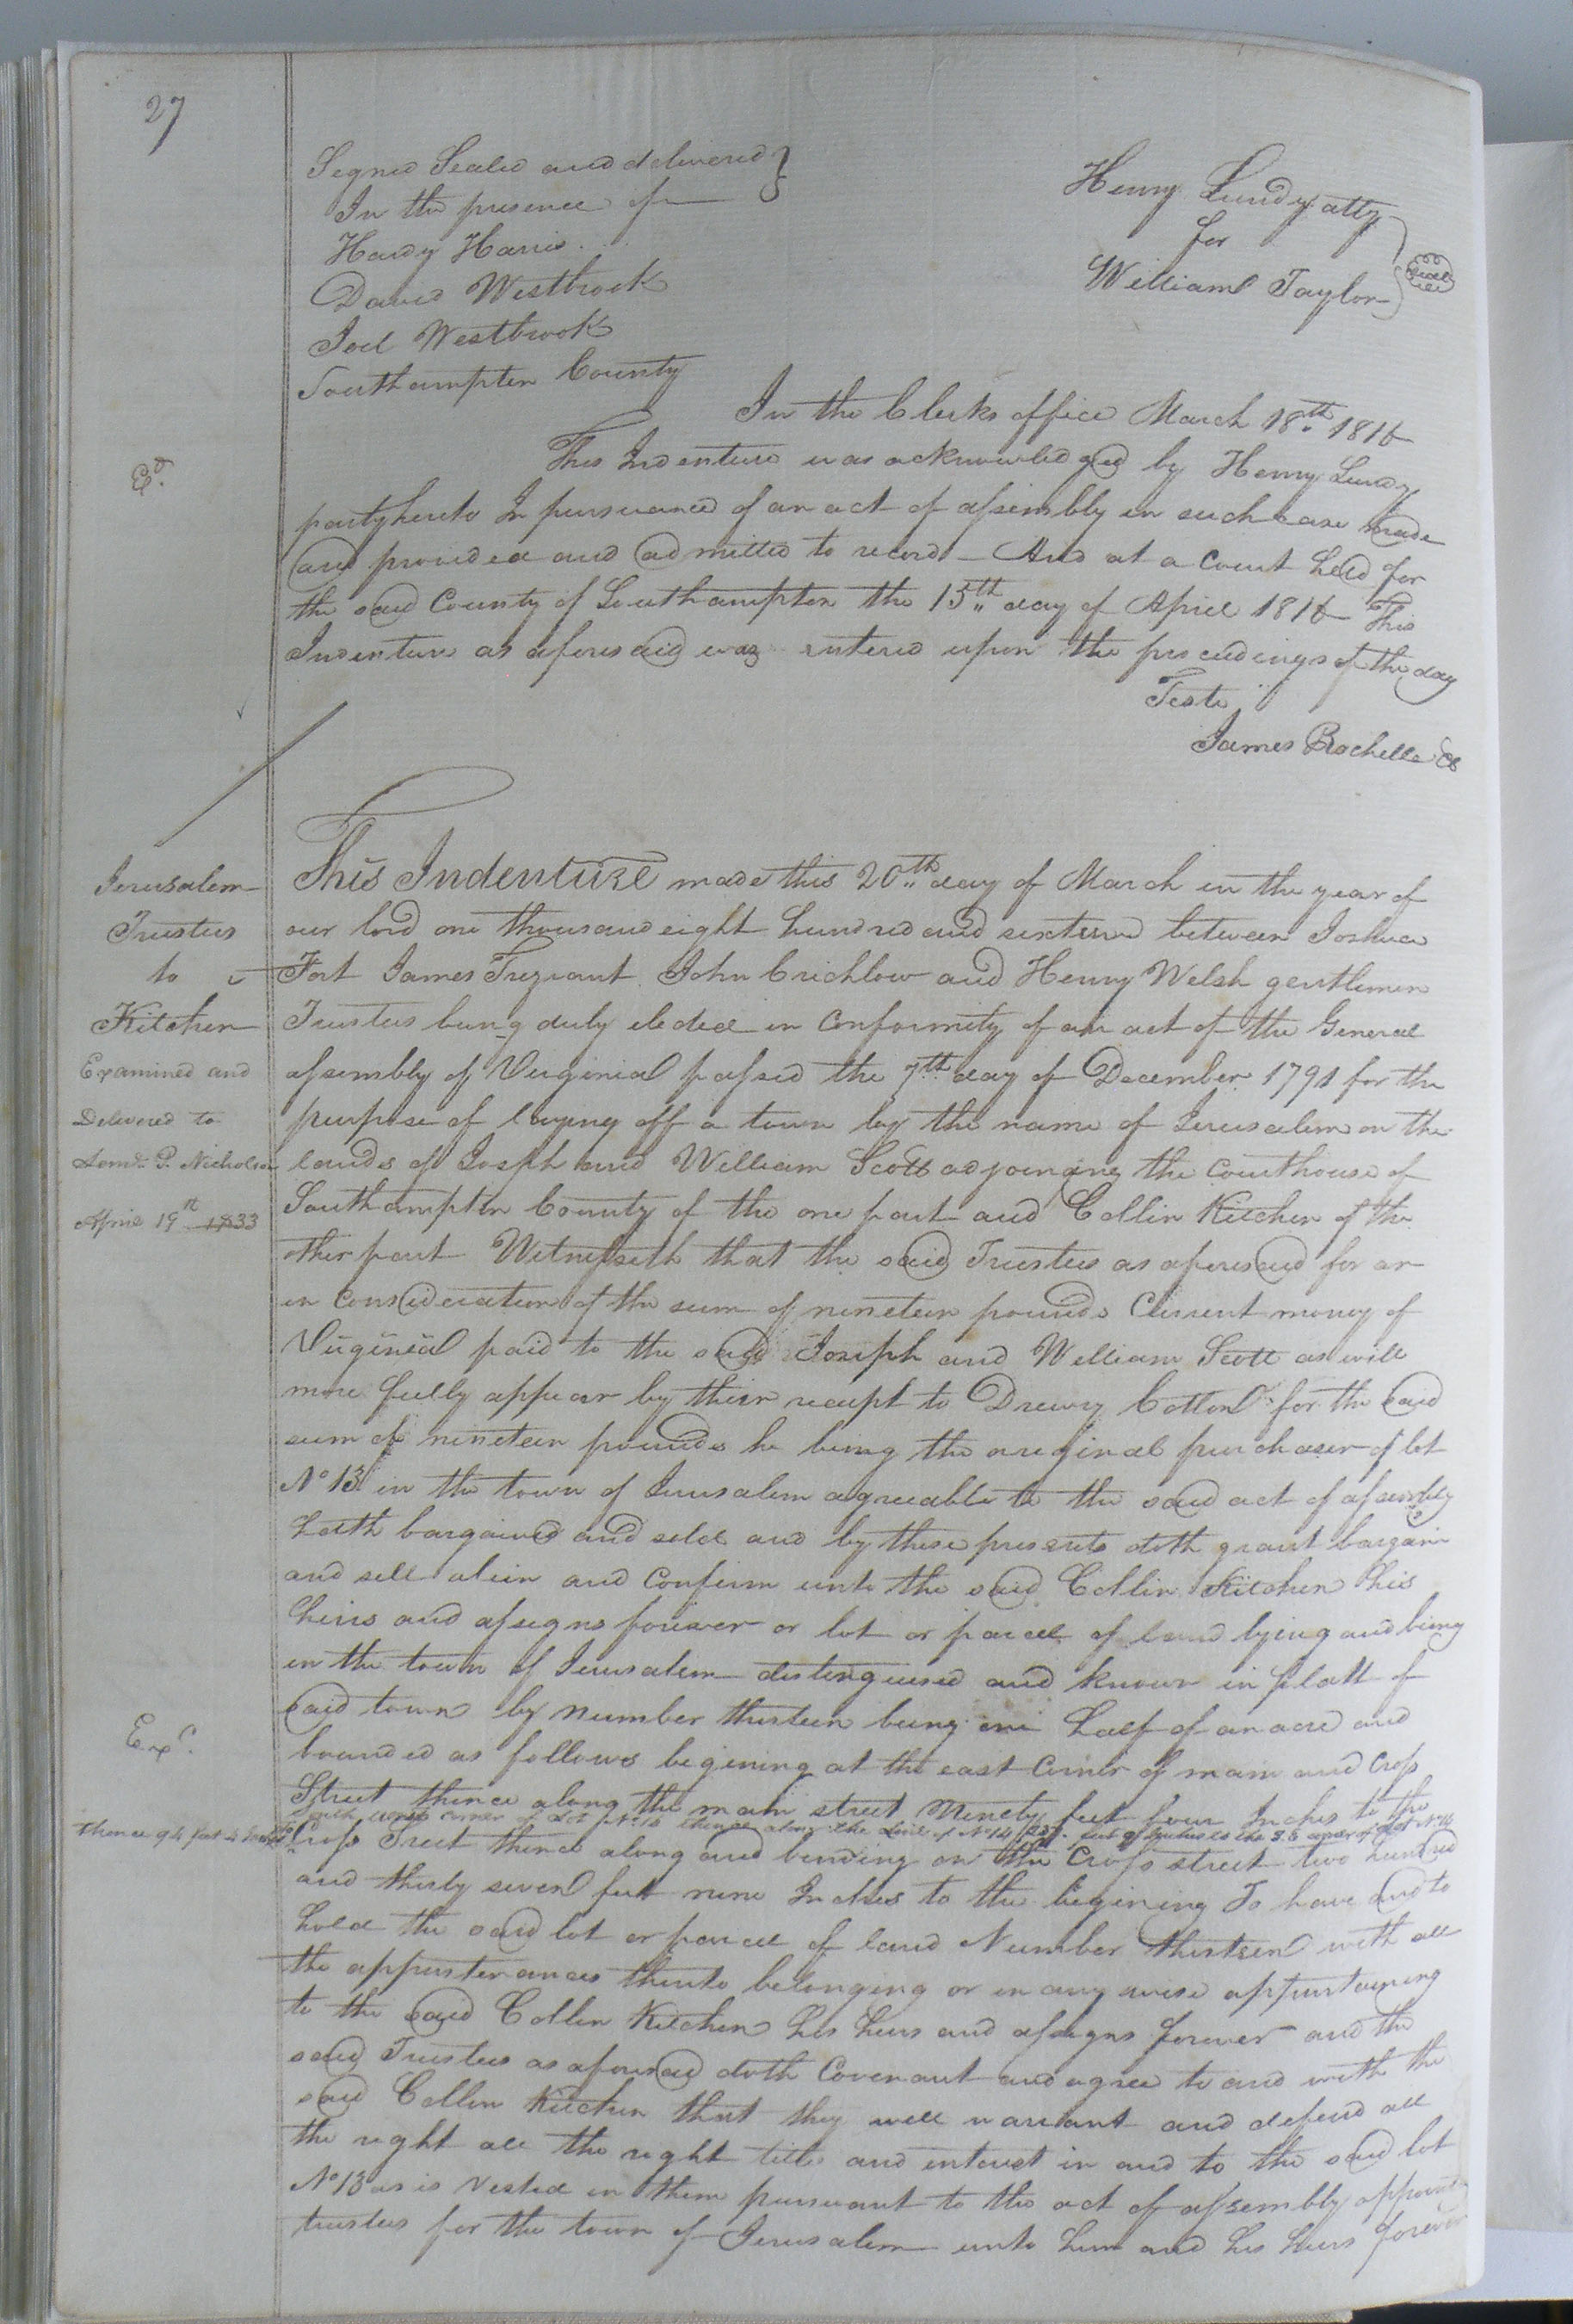 27
Signed Sealed and delivered }
In the presence of
Hardy Harris
David Westbrook
Joel Westbrook
Southampton County
Henry Lundy atty
for
William Taylor
Seal
In the Clerks office March 18th 1816
This Indenture was acknowledged by Henry Lundy
party hereto In pursuance of an act of assembly in such case made
and provided and admitted to record - And at a Court held for
the said County of Southampton the 15th day of April 1816 This
Indenture as aforesaid was entered upon the proceedings of the day
Teste
James Rochelle Cl
Exd.
Jerusalem
Trustees
to
Kitchen
Examined and
Delivered to
P. Nicholson
April 19th 1833
This Indenture made this 20th day of March in the year of
our lord one thousand eight hundred and sixteen between Joshua
Fort James Trezvant John Crichlow and Henry Welsh gentlemen
Trustees being duly elected in Conformity of an act of the General
assembly of Virginia passed the 7th day of December 1791 for the
purpose of laying off a town by the name of Jerusalem on the
lands of Joseph and William Scott adjoining the Courthouse of
Southampton County of the one part and Collin Kitchen of the
other part Witnesseth that the said Trustees as aforesaid for an
in Consideration of the sum of nineteen pounds Current money of
Virginia paid to the said Joseph and William Scott as will
more fully appear by their receipt to Drewry Cotton for the said
sum of nineteen pounds he being the original purchaser of lot
No 13 in the town of Jerusalem agreeable to the said act of assembly
hath bargained and sold and by these presents doth grant bargain
and sell alein and Confirm unto the said Collin Kitchen his
heirs and assigns forever or lot or parcel of land lying and being
in the town of Jerusalem distinguised and known in platt of
said town by number thirteen being one half of an acre and
bounded as follows begining at the east Corner of main and Cross
Street thence along the main street Ninety feet four Inches to the
south corner of Lot No 14 thence along the line of No 14 237 feet 9 Inches to the S.E corner of Lot No 14
thence 94 feet 4 Inches to
Cross Treet thence along and binding on the Cross street two hundred
and thirty seven feet nine Inches to the begining To have and to
hold the said lot or parcel of land Number thirteen with all
the appurtenances thereto belonging or in any wise appurtaining
to the said Collin Kitchen his heirs and assigns forever and the
said Trustees as aforesaid doth Covenant and agree to and with the
said Collin Kitchen that they will warrant and defend all
the right all the right title and interest in and to the said lot
No 13 as is vested in them pursuant to the act of assembly
trustees for the town of Jerusalem unto him and his heirs forever
Exd.